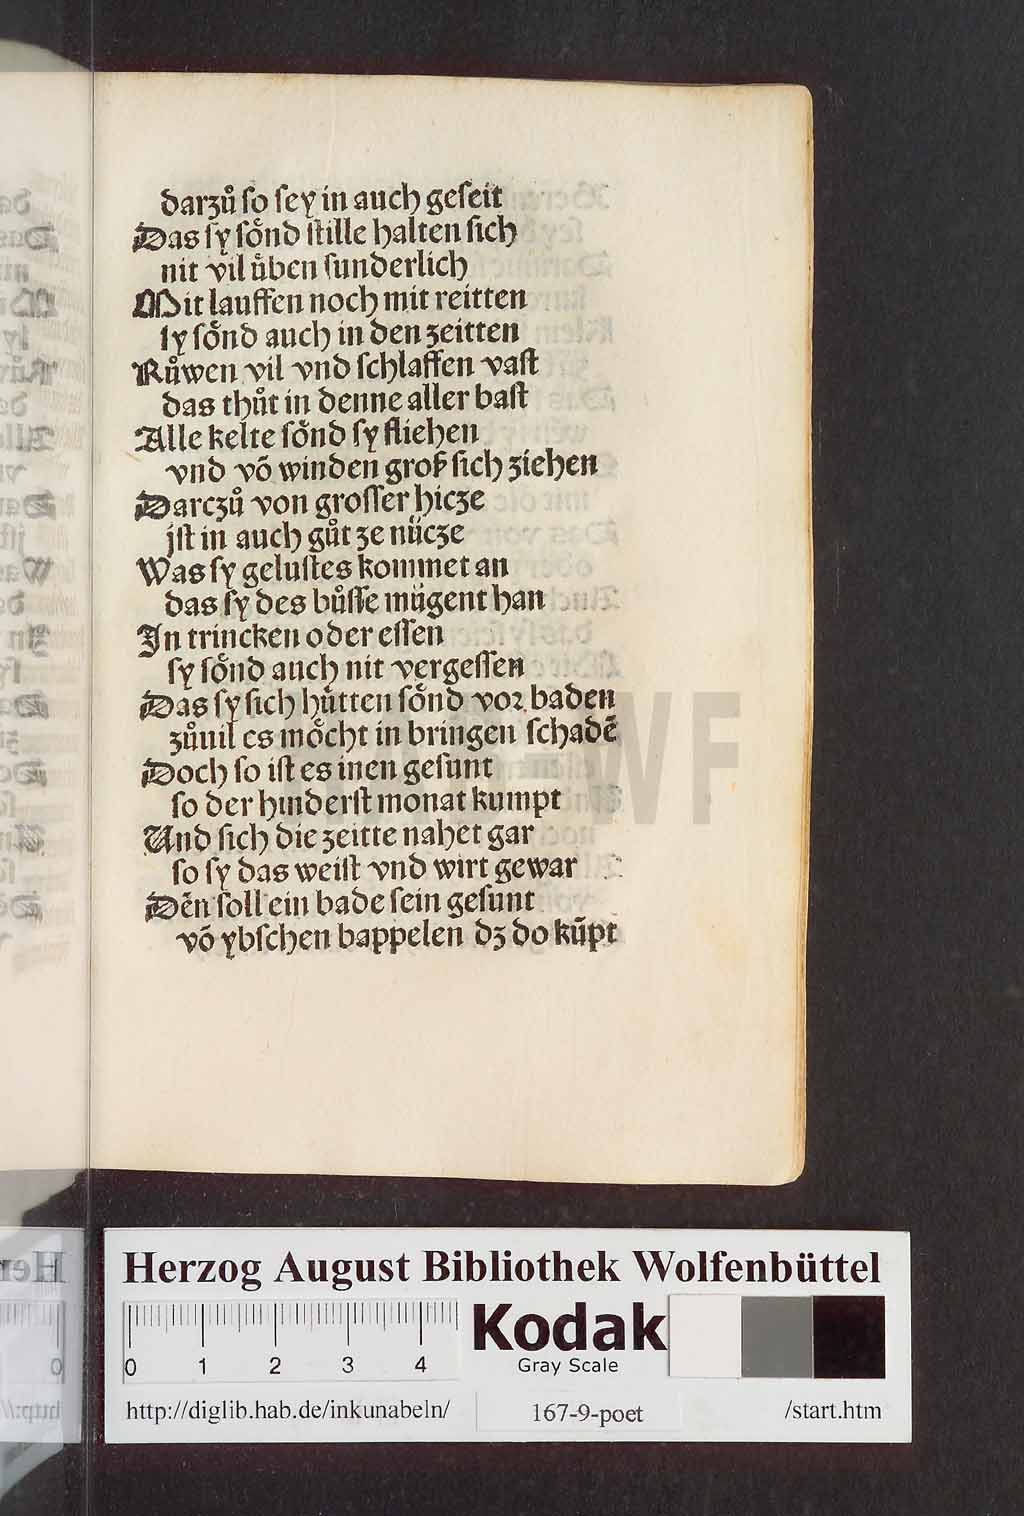 darzů so sey in auch geseit
Das sy soͤnd stille halten sich
nit vil uͤben sunderlich
Mit lauffen noch mit reitten
sy soͤnd auch in den zeitten
Růwen vil vnd schlaffen vast
das thůt in denne aller bast
Alle kelte soͤnd sy fliehen
vnd võ winden groß sich ziehen
Darczů von grosser hicze
jst in auch gůt ze nücze
Was sy gelustes kommet an
das sy des bůsse mügent han
In trincken oder essen
sy soͤnd auch nit vergessen
Das sy sich huͤtten soͤnd vor baden
zůuil es moͤcht in bringen schadẽ
Doch so ist es inen gesunt
so der hinderst monat kumpt
Und sich die zeitte nahet gar
so sy das weist vnd wirt gewar
Dẽn soll ein bade sein gesunt
võ ybschen bappelen dz do kũpt
HAB WF
Herzog August Bibliothek Wolfenbüttel
0 1 2 3 4
Kodak
Gray Scale
http://diglib.hab.de/inkunabeln/ 167-9-poet /start.htm